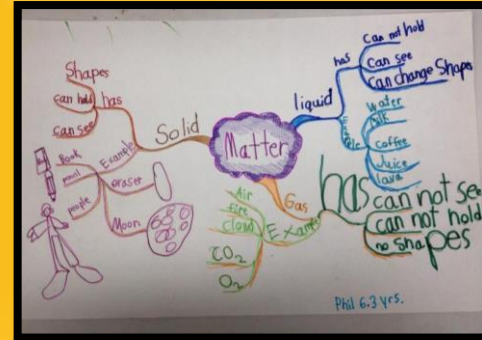 Matter
Solid
has
Shapes
can hold
can see
Example
Book
pencil
people
eraser
Moon
liquid
has
can not hold
can see
can change Shapes
Example
water
milk
coffee
Juice
lava
Gas
has
can not see
can not hold
no shapes
Example
Air
fire
cloud
CO₂
O₂
Phil 6.3 yrs.